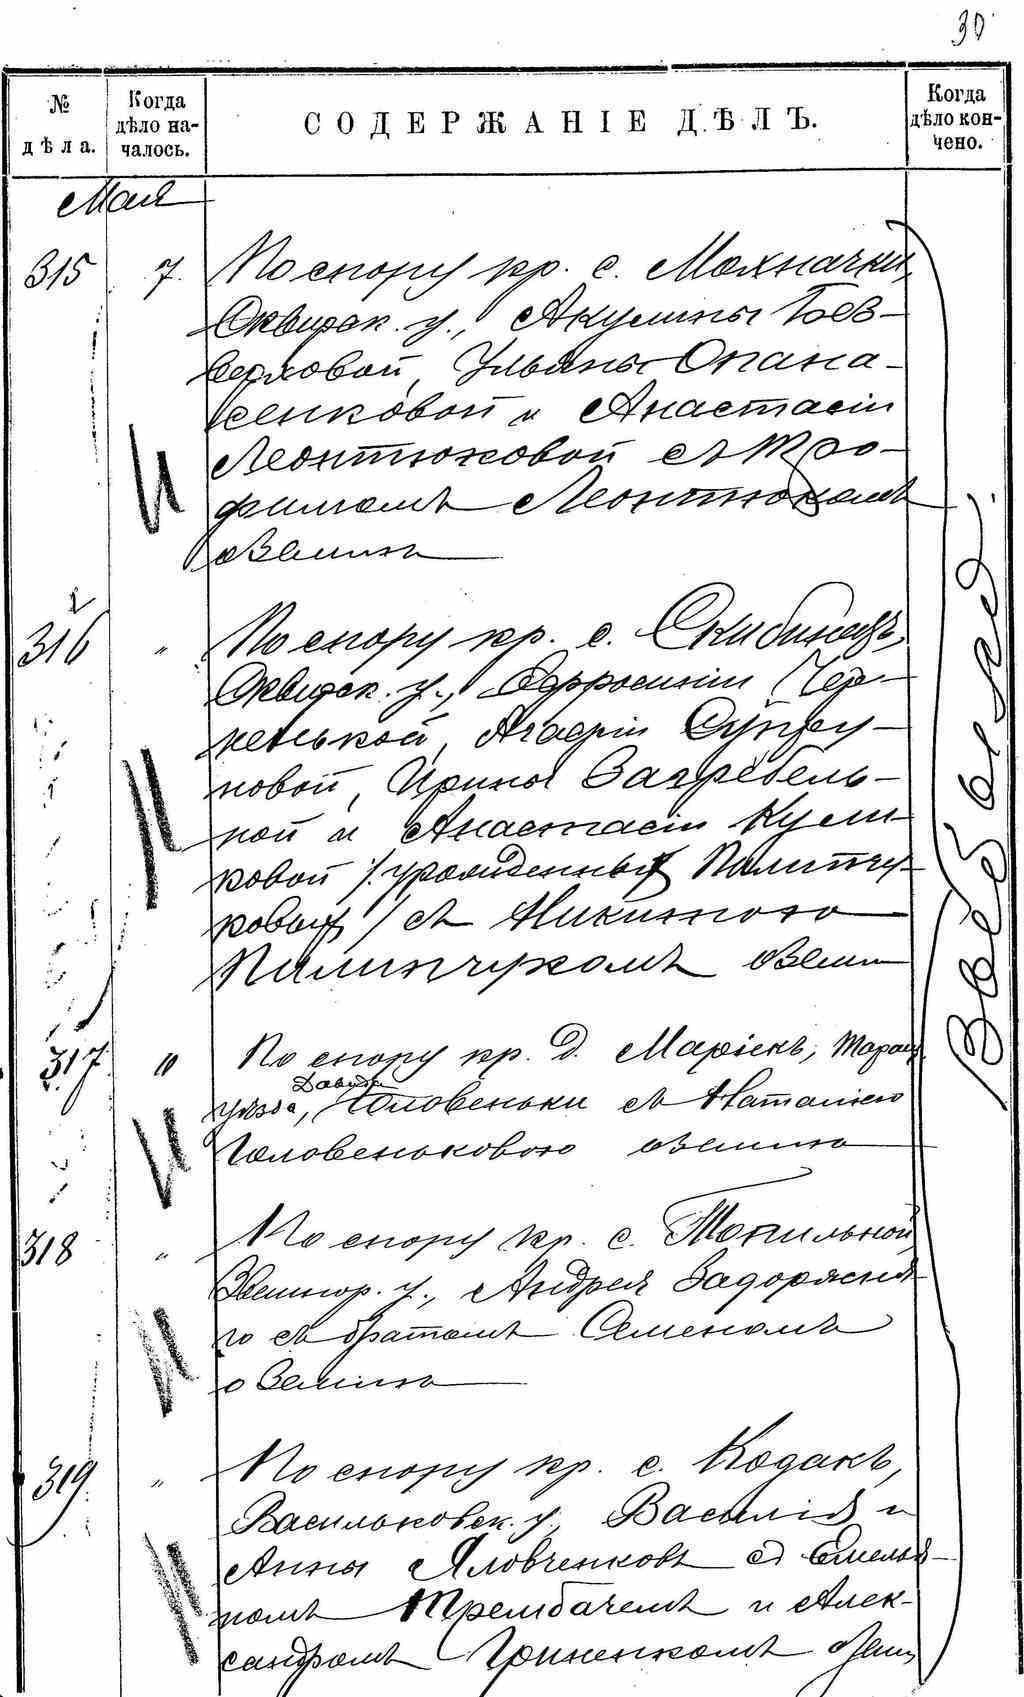 30
№ дѣла.
Когда дѣло на-
чалось.
СОДЕРЖАНІЕ ДѢЛЪ.
Когда дѣло кон-
чено.
Мая
315 7. По спору кр. с. Мохначки,
Сквирск. у., Акулины Без-
верховой, Ульяны Опана-
сенковой и Анастасіи
Леонтюковой съ Тро-
фимомъ Леонтюкомъ
о земли
316 „ По спору кр. с. Скибинецъ,
Сквирск. у., Ефросиніи Чер-
ненькой, Агафіи Супру-
новой, Ирины Загребель-
ной и Анастасіи Кули
ковой /урожденныхъ Палипчу-
ковыхъ/ съ Никитою
Палипчукомъ о земли
317 „ По спору кр. д. Марієкъ, Таращ.
уѣзда, Давида Головеньки съ Наталіею
Головеньковою о земли
318 „ По спору кр. с. Топильной,
Звенигор. у., Андрея Задорожна
го съ братомъ Семеномъ
о земли
319 „ По спору кр. с. Кодакъ,
Васильковск. у., Василія и
Анны Яловченковъ съ Емелья-
номъ Трембачемъ и Алек-
сандромъ Гриненкомъ о земли